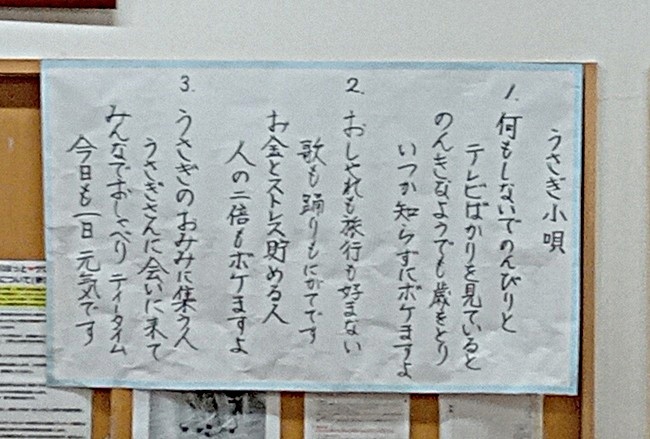 うさぎ小唄
1. 何もしないでのんびりと
テレビばかりを見ていると
のんきなようでも歳をとり
いつか知らずにボケますよ
2. おしゃれも旅行も好まない
歌も踊りもにがてです
お金とストレス貯める人
人の二倍もボケますよ
3. うさぎのおみみに集う人
うさぎさんに会いに来て
みんなでおしゃべり ティータイム
今日も一日 元気です